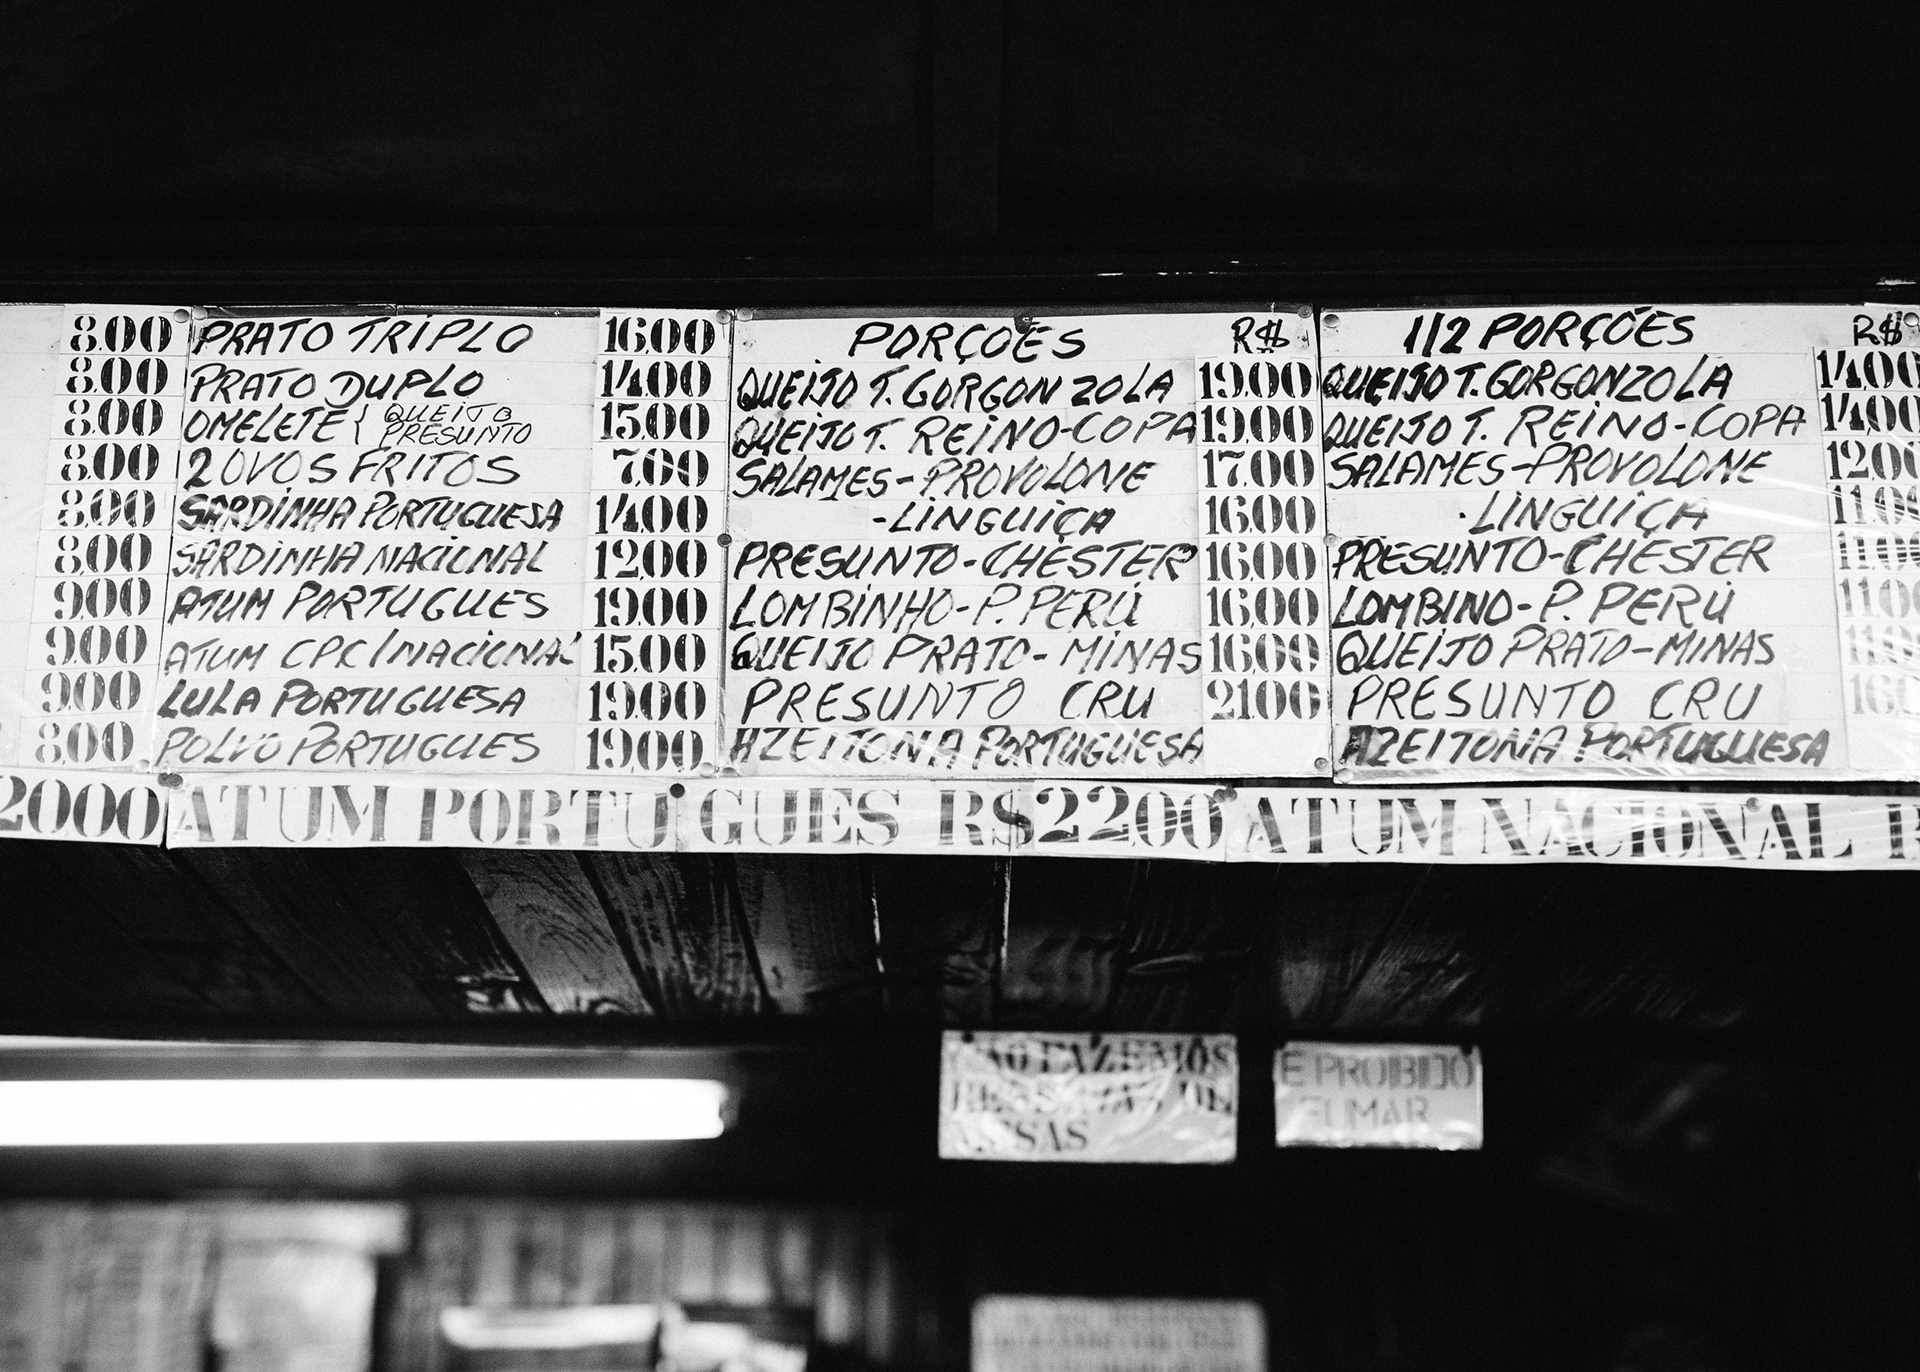 8.00
8.00
8.00
8.00
8.00
8.00
9.00
9.00
9.00
8.00
PRATO TRIPLO 16.00
PRATO DUPLO 14.00
OMELETE { QUEIJO PRESUNTO 15.00
2 OVOS FRITOS 7.00
SARDINHA PORTUGUESA 14.00
SARDINHA NACIONAL 12.00
ATUM PORTUGUES 19.00
ATUM CPC/NACIONAL 15.00
LULA PORTUGUESA 19.00
POLVO PORTUGUES 19.00
PORÇOES R$
QUEIJO T. GORGONZOLA 19.00
QUEIJO T. REINO-COPA 19.00
SALAMES-PROVOLONE 17.00
-LINGUIÇA 16.00
PRESUNTO-CHESTER 16.00
LOMBINHO-P. PERÚ 16.00
QUEIJO PRATO-MINAS 16.00
PRESUNTO CRU 21.00
AZEITONA PORTUGUESA
1/2 PORÇÕES R$
QUEIJO T. GORGONZOLA 14.00
QUEIJO T. REINO-COPA 14.00
SALAMES-PROVOLONE 12.00
-LINGUIÇA 11.00
PRESUNTO-CHESTER 11.00
LOMBINO-P. PERÚ 11.00
QUEIJO PRATO-MINAS 11.00
PRESUNTO CRU
AZEITONA PORTUGUESA
2000 ATUM PORTUGUES R$2200 ATUM NACIONAL R
NÃO FAZEMOS
RESERVAS DE
MESAS
E PROIBIDO
FUMAR